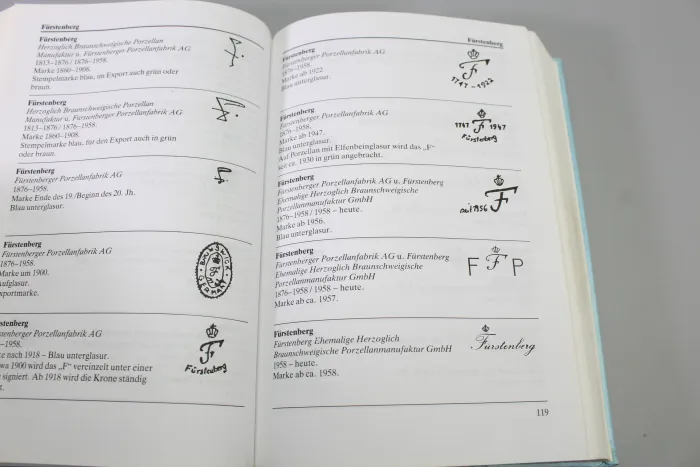 Fürstenberg
Fürstenberg
Herzoglich Braunschweigische Porzellan
Manufaktur u. Fürstenberger Porzellanfabrik AG
1813–1876 / 1876–1958.
Marke 1860–1908.
Stempelmarke blau, im Export auch grün oder
braun.
Fürstenberg
Herzoglich Braunschweigische Porzellan
Manufaktur u. Fürstenberger Porzellanfabrik AG
1813–1876 / 1876–1958.
Marke 1860–1908.
Stempelmarke blau, für den Export auch in grün
oder braun.
Fürstenberg
Fürstenberger Porzellanfabrik AG
1876–1958.
Marke Ende des 19./Beginn des 20. Jh.
Blau unterglasur.
Fürstenberg
Fürstenberger Porzellanfabrik AG
1876–1958.
Marke um 1900.
Aufglasur.
Exportmarke.
BRUNSWICK
GERMANY
Fürstenberg
Fürstenberger Porzellanfabrik AG
–1958.
ke nach 1918 – Blau unterglasur.
wa 1900 wird das „F" vereinzelt unter einer
signiert. Ab 1918 wird die Krone ständig
t.
F
Fürstenberg
Fürstenberg
Fürstenberg
Fürstenberger Porzellanfabrik AG
1876–1958.
Marke ab 1922.
Blau unterglasur.
F
1747–1922
Fürstenberg
Fürstenberger Porzellanfabrik AG
1876–1958.
Marke ab 1947.
Blau unterglasur.
Auf Porzellan mit Elfenbeinglasur wird das „F"
seit ca. 1930 in grün angebracht.
1747 F 1947
Fürstenberg
Fürstenberg
Fürstenberger Porzellanfabrik AG u. Fürstenberg
Ehemalige Herzoglich Braunschweigische
Porzellanmanufaktur GmbH
1876–1958 / 1958 – heute.
Marke ab 1956.
Blau unterglasur.
seit 1956 F
Fürstenberg
Fürstenberger Porzellanfabrik AG u. Fürstenberg
Ehemalige Herzoglich Braunschweigische
Porzellanmanufaktur GmbH
1876–1958 / 1958 – heute.
Marke ab ca. 1957.
F F P
Fürstenberg
Fürstenberg Ehemalige Herzoglich
Braunschweigische Porzellanmanufaktur GmbH
1958 – heute.
Marke ab ca. 1958.
Fürstenberg
119